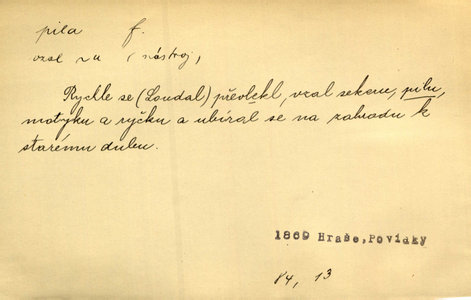 pila f.
vzal 
(nástroj)
Rychle se (Loudal) převlékl, vzal sekeru, pilu,
motyku a rýčku a ubíral se na zahradu k
starému dubu.
1869 Hraše, Povídky
84, 13